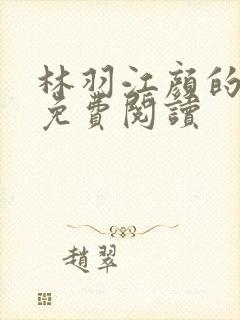 林羽江顏的
免費閱讀
趙翠